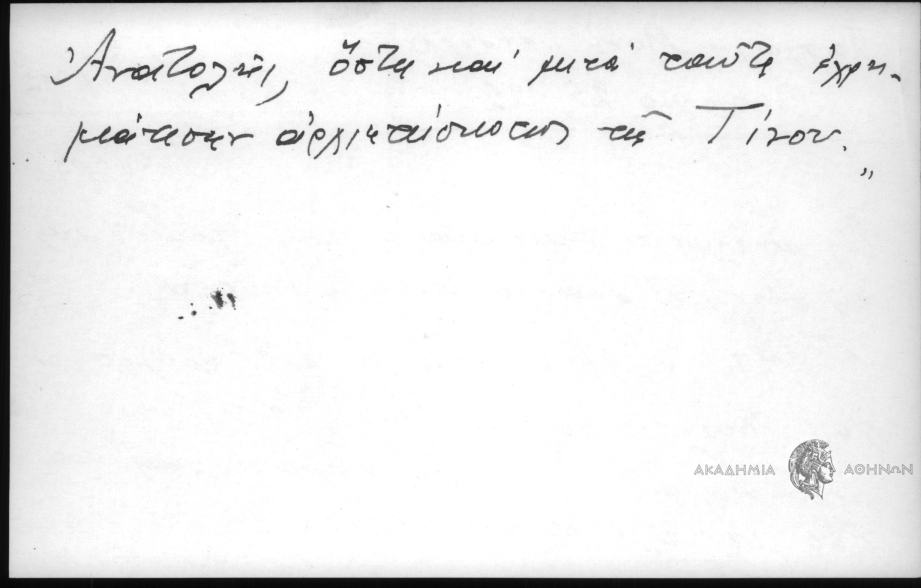 Ἀνατολῆς, ὅστις καί μετά ταῦτα ἐχρη-
μάτισεν ἀρχιεπίσκοπος τῆς Τίνου.„
ΑΚΑΔΗΜΙΑ ΑΘΗΝΩΝ